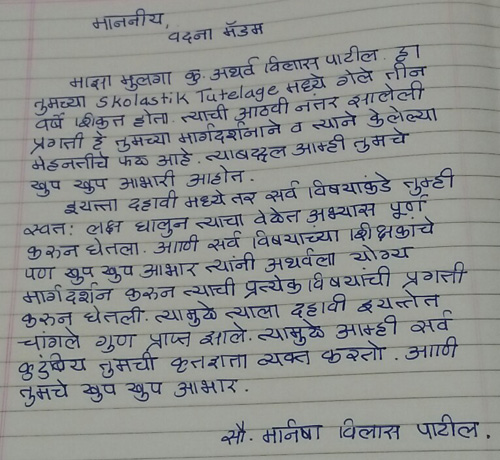 माननीय,
वदना मॅडम
माझा मुलगा कु. अथर्व विलास पाटील. हा
तुमच्या Skolastik Tutelage मध्ये गेले तीन
वर्षे शिकत होता. त्याची आठवी नंतर झालेली
प्रगती हे तुमच्या मार्गदर्शनाने व त्याने केलेल्या
मेहनतीचे फळ आहे. त्याबद्दल आम्ही तुमचे
खुप खुप आभारी आहोत.
इयत्ता दहावी मध्ये तर सर्व विषयांकडे तुम्ही
स्वतः लक्ष घालुन त्याचा वेळेत अभ्यास पूर्ण
करुन घेतला. आणी सर्व विषयाच्या शिक्षकांचे
पण खुप खुप आभार त्यांनी अथर्वला योग्य
मार्गदर्शन करुन त्याची प्रत्येक विषयांची प्रगती
करुन घेतली. त्यामुळे त्याला दहावी इयत्तेत
चांगले गुण प्राप्त झाले. त्यामुळे आम्ही सर्व
कुटुंबीय तुमची कृतज्ञता व्यक्त करतो. आणी
तुमचे खुप खुप आभार.
सौ. मनिषा विलास पाटील.